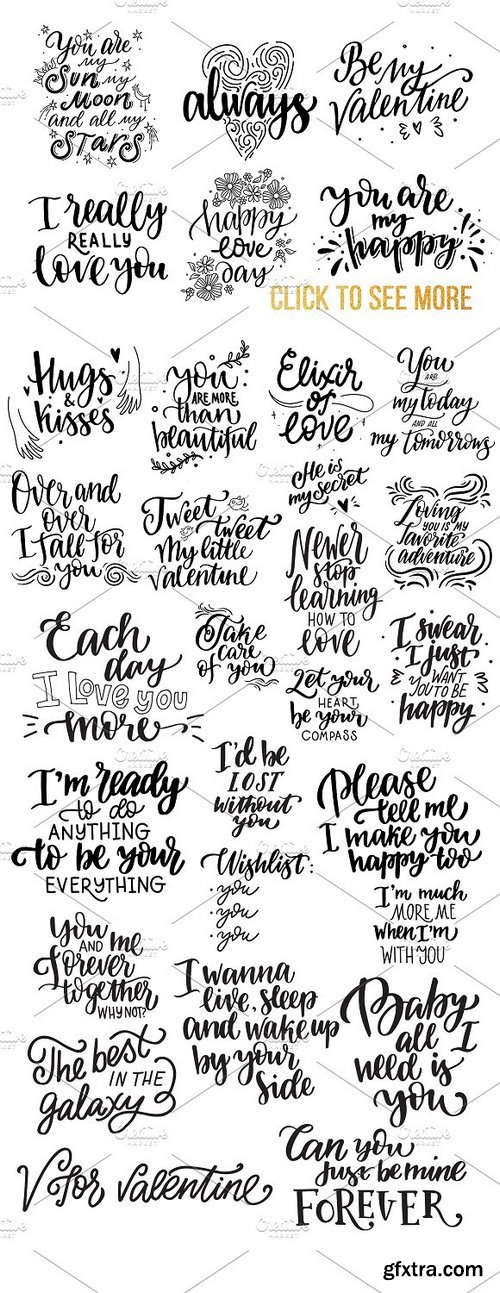 You are
my
Sun my
Moon
and all my
Stars
always
Be my
Valentine
I really
REALLY
love you
happy
love
day
you are
my
happy
CLICK TO SEE MORE
Hugs
&
kisses
you
ARE MORE
than
beautiful
Elixir
of
love
You
are
my today
AND ALL
my tomorrows
Over and
over
I fall for
you
Tweet
tweet
My little
Valentine
He is
my secret
Newer
stop
learning
HOW TO
love
Loving
YOU IS MY
favorite
adventure
Each
day
I Love you
more
Take
care
of you
Let your
HEART
be your
COMPASS
I swear
I just
WANT
YOU TO BE
happy
I'm ready
to do
ANYTHING
to be your
EVERYTHING
I'd be
LOST
without
you
Please
tell me
I make you
happy too
Wishlist:
· you
· you
· you
I'm much
MORE ME
when I'm
WITH YOU
You
AND me
Forever
together
WHY NOT?
I wanna
live, sleep
and wake up
by your
side
Baby
all I
need is
you
The best
IN THE
galaxy
V for valentine
Can you
just be mine
FOREVER
gfxtra.com